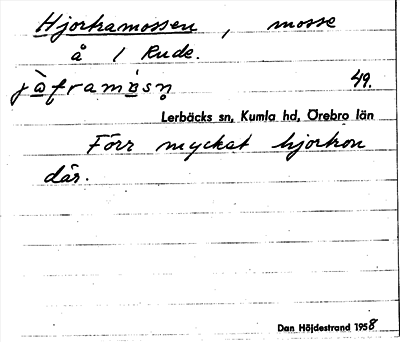 Hjortramossen, mosse
å 1 Rude.
jòframòsn̥ 49.
Lerbäcks sn, Kumla hd, Örebro län
Förr mycket hjortron
där.
Dan Höjdestrand 1958